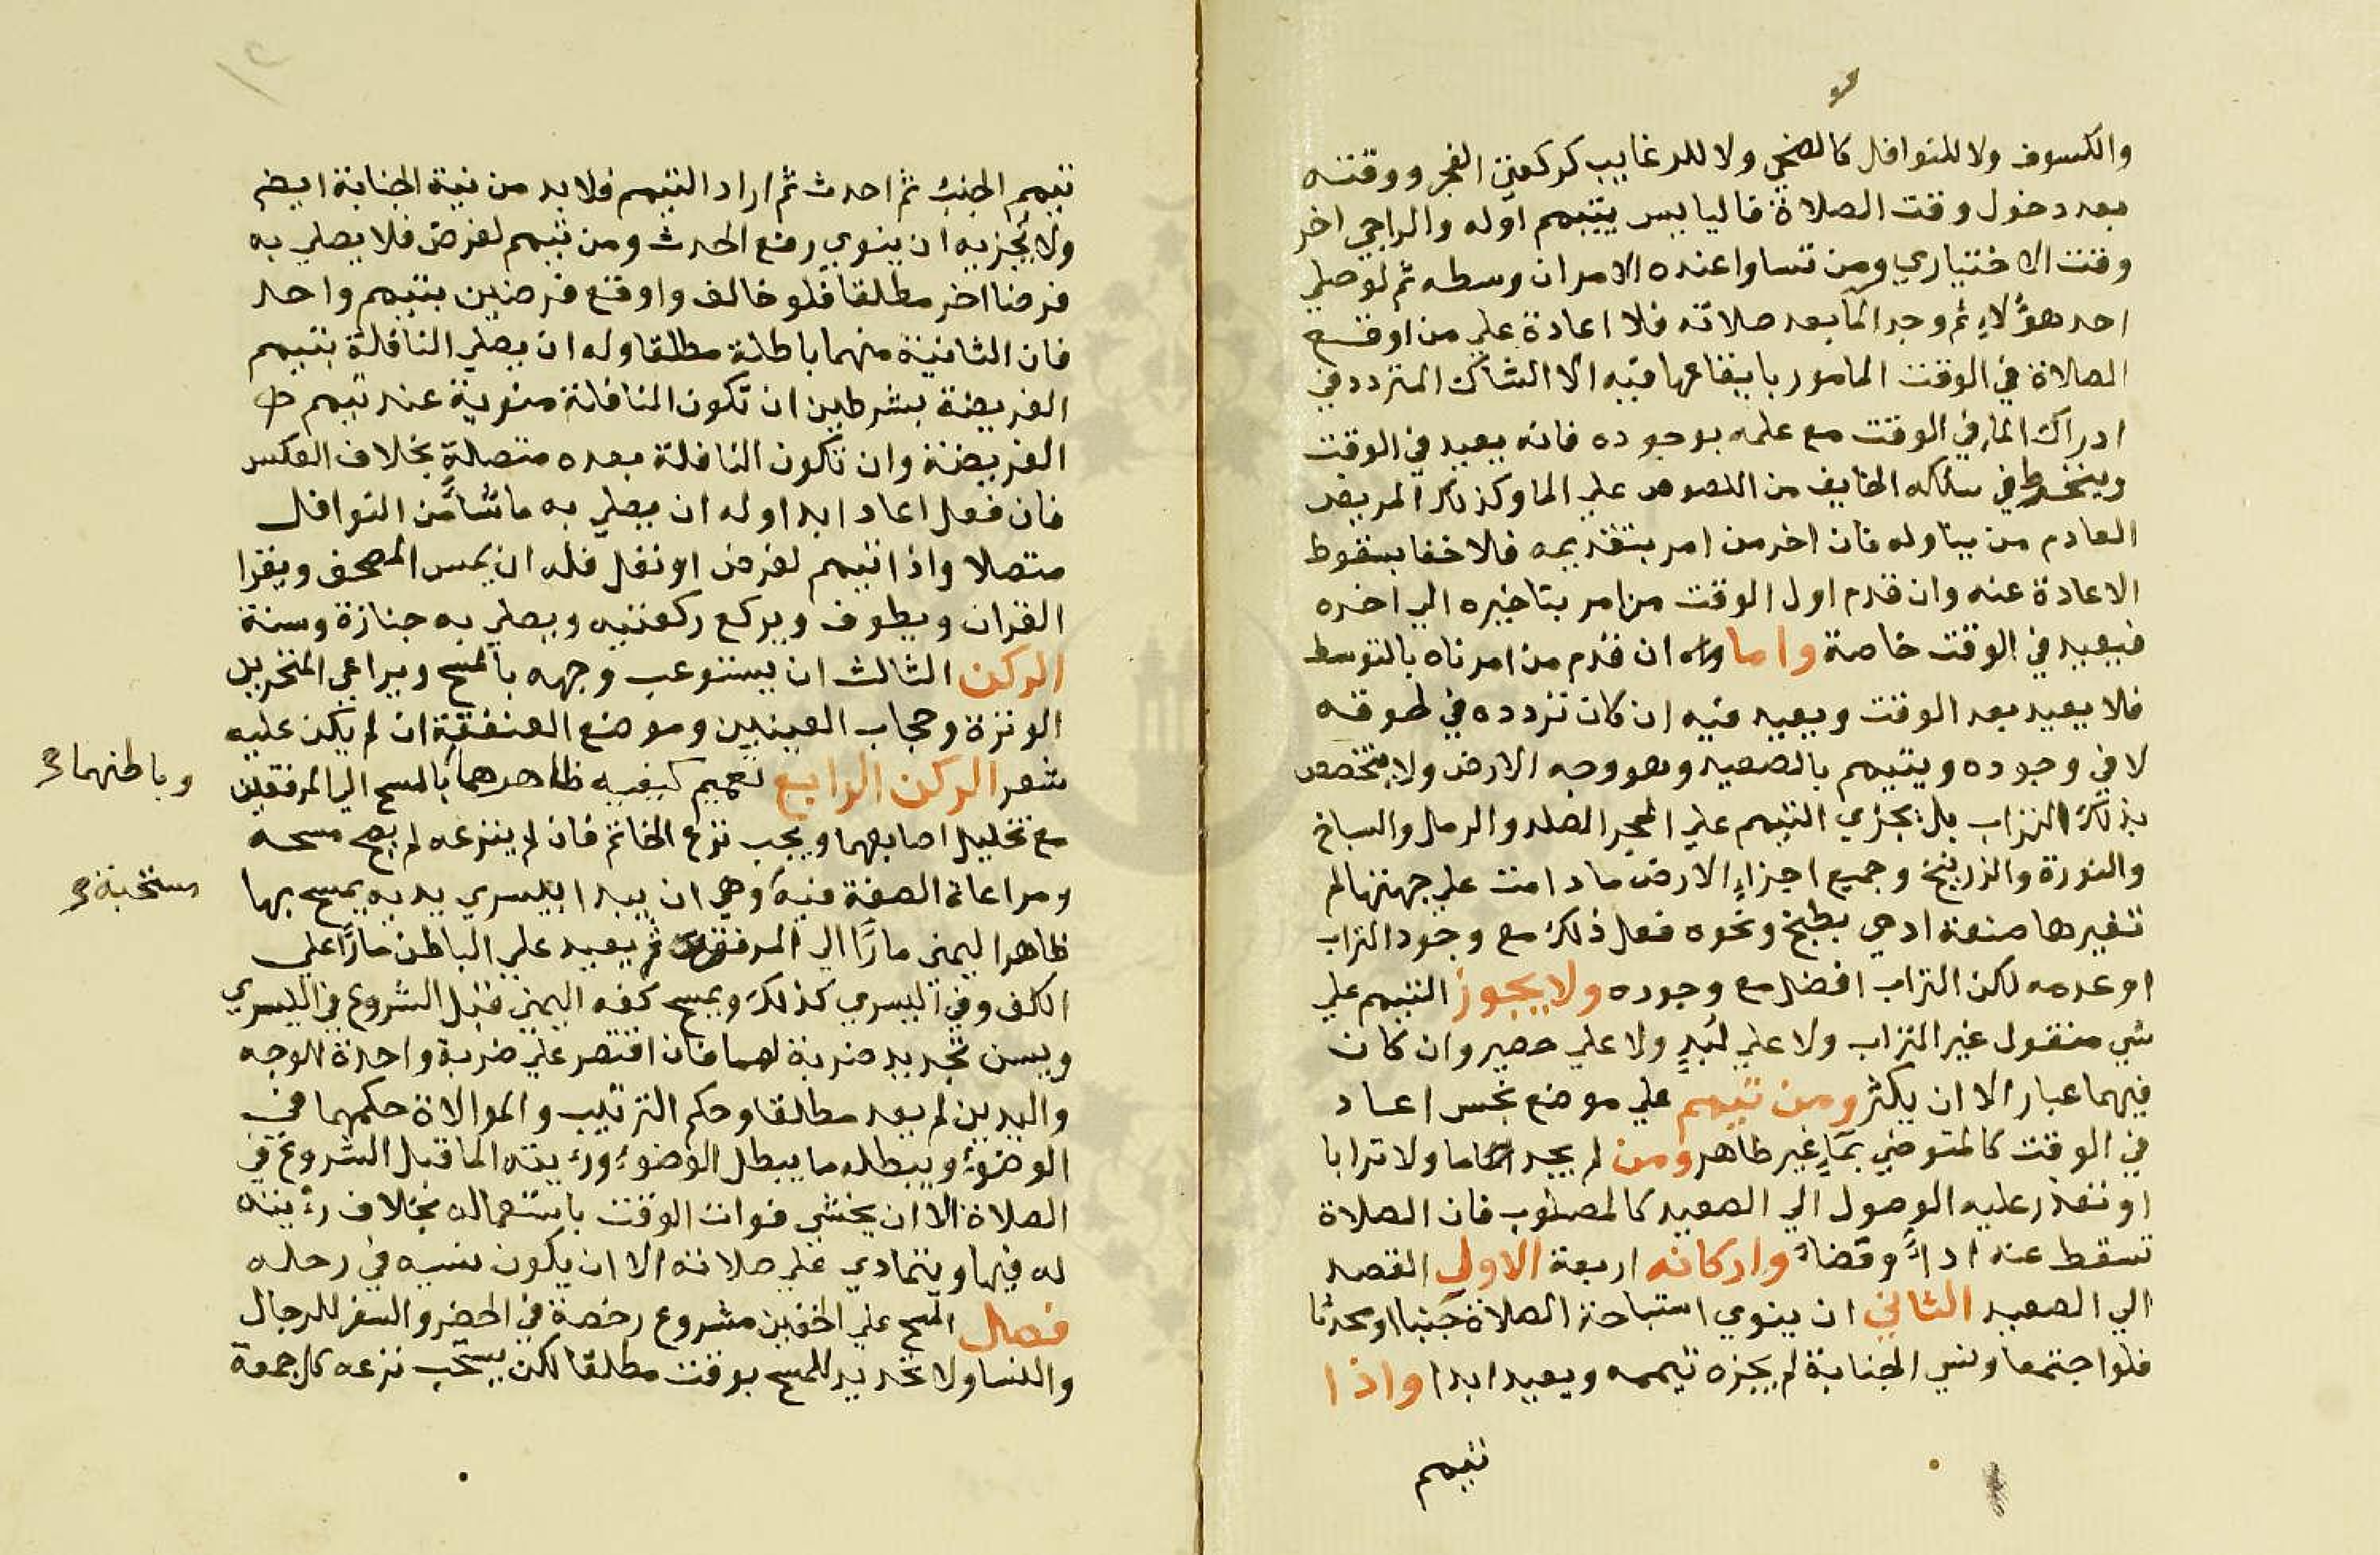 والكسوف ولا للنوافل كالضحي ولا للرغايب كركعتي الفجر ووقته
بعد دخول وقت الصلاة فاليايس يتيمم اوله والراجي اخر
وقت الاختياري ومن تساوا عنده الامران وسطه ثم لو صلي
احد هؤلاء ثم وجد الما بعد صلاته فلا اعادة علي من اوقع
الصلاة في الوقت المامور بايقاعها فيه الا الشاك المتردد في
ادراك الما في الوقت مع علمه بوجوده فانه يعيد في الوقت
وينخرط في سلكه الخايف من اللصوص علي الما وكذلك المريض
العادم من يناوله فان اخر من امر بتقديمه فلا خفا بسقوط
الاعادة عنه وان قدم اول الوقت من امر بتاخيره الي اخره
فيعيد في الوقت خاصة واما ان قدم من امرناه بالتوسط
فلا يعيد بعد الوقت ويعيد فيه ان كان تردده في لحوقه
لا في وجوده ويتيمم بالصعيد وهو وجه الارض ولا يتخصص
بذلك التراب بل يجزي التيمم علي الحجر الصلد والرمل والسباخ
والنورة والزرنيخ وجميع اجزاء الارض ما دامت علي جهتها لم
تغيرها صنعة ادمي بطبخ ونحوه فعل ذلك مع وجود التراب
او عدمه لكن التراب افضل مع وجوده ولا يجوز التيمم علي
شي منقول غير التراب ولا علي لبد ولا علي حصير وان كان
فيهما غبار الا ان يكثر ومن تيمم علي موضع نجس اعاد
في الوقت كالمتوضي بماء غير طاهر ومن لم يجد ما ولا ترابا
او تعذر عليه الوصول الي الصعيد كالمصلوب فان الصلاة
تسقط عنه اداءً وقضاءً واركانه اربعة الاول القصد
الي الصعيد الثاني ان ينوي استباحة الصلاة جنبا او محدثا
فلو اجتمعا ونسي الجنابة لم يجزه تيممه ويعيد ابدا واذا
تيمم
تيمم الجنب ثم احدث ثم اراد التيمم فلا بد من نية الجنابة ايضا
ولا يُجزيه ان ينوي رفع الحدث ومن تيمم لفرض فلا يصلي به
فرضا اخر مطلقا فلو خالف واوقع فرضين بتيمم واحد
فان الثانية منهما باطلة مطلقا وله ان يصلي النافلة بتيمم
الفريضة بشرطين ان تكون النافلة منوية عند تيمم
الفريضة وان تكون النافلة بعده متصلة بخلاف العكس
فان فعل اعاد ابدا وله ان يصلي به ما شا من النوافل
متصلا واذا تيمم لفرض او نفل فله ان يمس المصحف ويقرا
القران ويطوف ويركع ركعتيه ويصلي به جنازة وسنة
الركن الثالث ان يستوعب وجهه بالمسح ويراعي المنخرين
الوتره وحجاب العينين وموضع العنفقة ان لم يكن عليه
شعر الركن الرابع تعميم كيفيه ظاهرهما بالمسح الي المرفقين
وباطنهما
مع تخليل اصابعهما ويجب نزع الخاتم فان لم ينزعه لم يصح مسحه
ومراعاة الصفة فيه وهي ان يبدا بيسري يديه يمسح بها
مستحبة
ظاهر اليمني مارًا الي المرفق ثم يعيد علي الباطن مارًا علي
الكف وفي اليسري كذلك ويمسح كفه اليمني قبل الشروع في اليسري
ويسن تجديد ضربة لهما فان اقتصر علي ضربة واحدة للوجه
واليدين لم يعد مطلقا وحكم الترتيب والموالاة حكمهما في
الوضوء ويبطله ما يبطل الوضوء ورءيته الما قبل الشروع في
الصلاة الا ان يخشي فوات الوقت باستعماله بخلاف رءيته
له فيها ويتمادي علي صلاته الا ان يكون نسيه في رحله
فصل المسح علي الخفين مشروع رخصة في الحضر والسفر للرجال
والنسا ولا تحديد للمسح بوقت مطلقا لكن يستحب نزعه كل جمعة